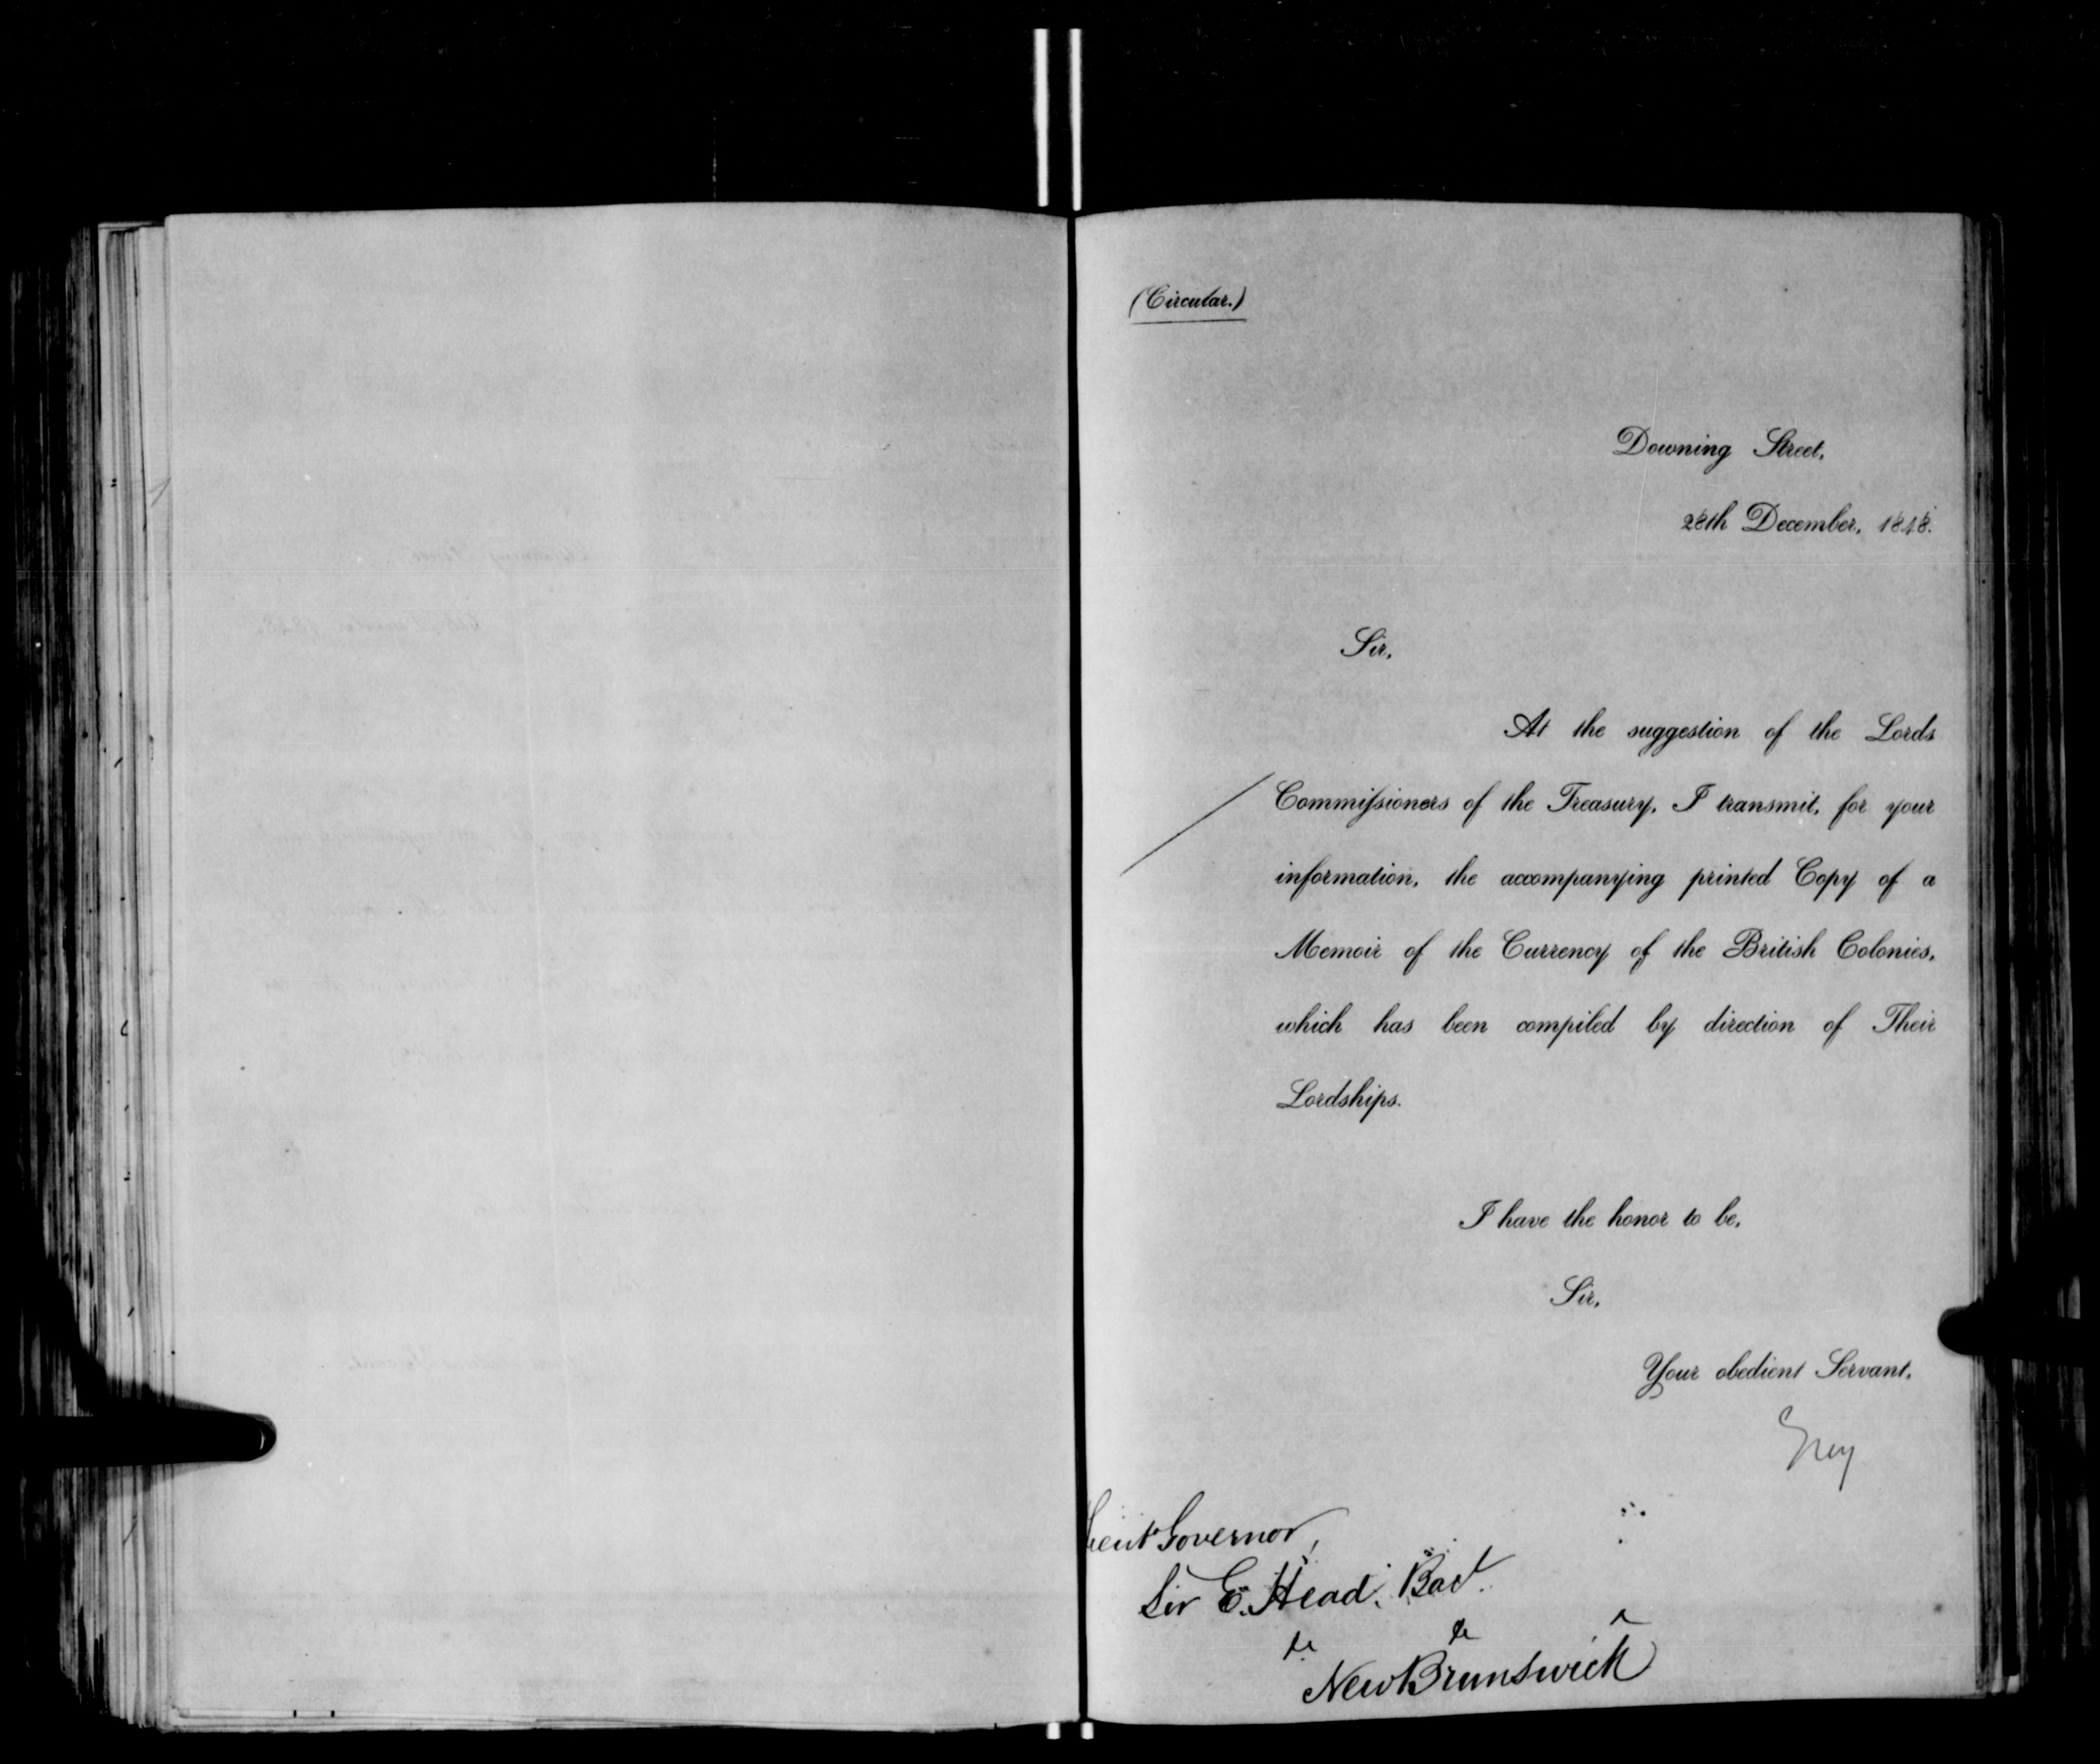 (Circular.)
Downing Street,
28th December, 1848.
Sir,
At the suggestion of the Lords
Commiſsioners of the Treasury, I transmit, for your
information, the accompanying printed Copy of a
Memoir of the Currency of the British Colonies,
which has been compiled by direction of Their
Lordships.
I have the honor to be,
Sir,
Your obedient Servant,
Grey
Lieut Governor,
Sir E. Head, Bart.
&c &c
New Brunswick